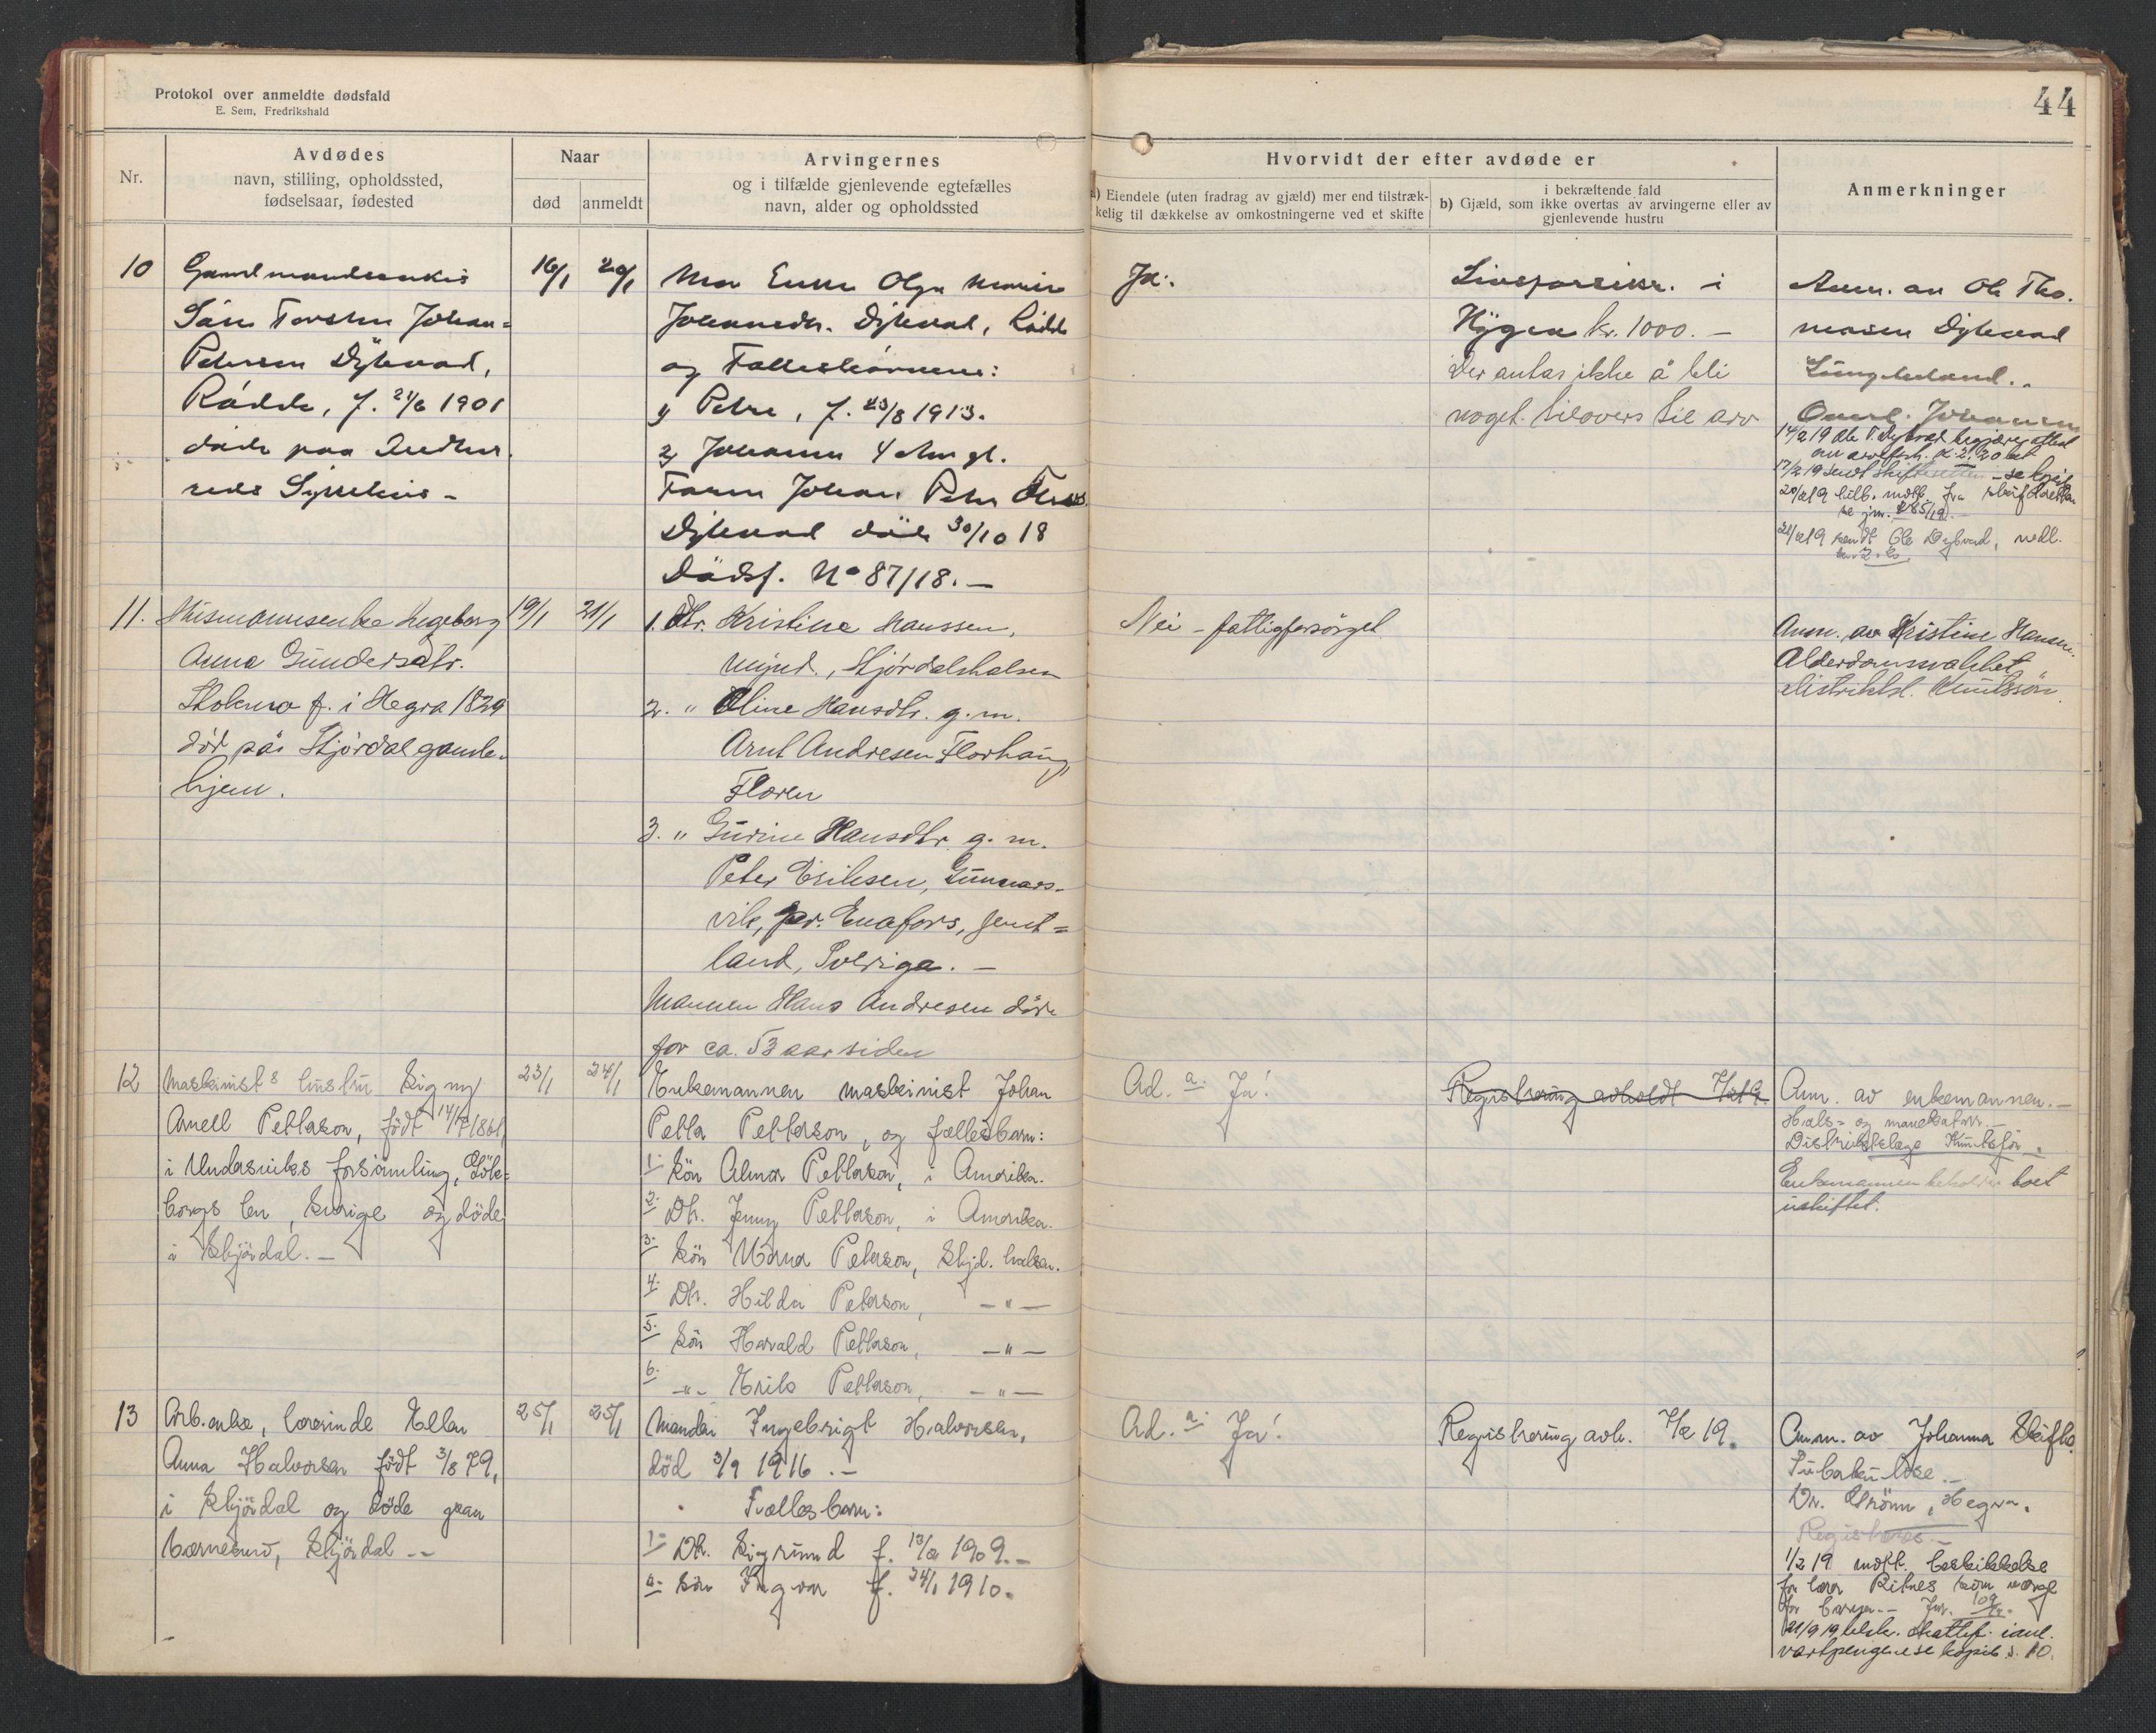 Protokol over anmeldte dødsfald
E. Sem, Fredrikshald
44
Nr.
Avdødes
navn, stilling, opholdssted,
fødselsaar, fødested
Naar
død
anmeldt
Arvingernes
og i tilfælde gjenlevende egtefælles
navn, alder og opholdssted
Hvorvidt der efter avdøde er
a) Eiendele (uten fradrag av gjæld) mer end tilstræk-
kelig til dækkelse av omkostningerne ved et skifte
i bekræftende fald
b) Gjæld, som ikke overtas av arvingerne eller av
gjenlevende hustru
Anmerkninger
10
Johan
Petersen Dybvad,
Rådde, f. 21/6 1901
døde paa
16/1
20/1
Mor Enke Olga Marie
Johansdtr. Dybvad, Rådde
og Fællesbørnene:
1) Petra, f. 23/8 1913.
2) Johanna 4 Aar gl.
Faren Johan Peter
Dybvad døde 30/10 18
Dødsf. No 87/18. —
Ja.
Livsforsikr. i
Hygea kr. 1000. —
Der antas ikke å bli
noget tilovers til arv
Anm. av Ole Tho-
masen Dybvad
14/2 19 Ole T. Dybvad begjærer attest
17/2 19 sendt skifteretten - se kopib
20/2 19 tilb. mott. fra skifteretten
se jnr. 285/19.
21/2 19 sendt Ole Dybvad, vedl.
11.
Husmannsenke Ingeborg
Anna Gundersdtr.
Stokmo f. i Hegra 1829
død på Stjørdal gamle-
hjem.
19/1
21/1
1. Dtr. Kristine Hanssen,
mynd., Stjørdalshalsen
2. " Oline Hansdtr. g. m.
Arnt Andresen Florhaug,
Floren
3. " Gurine Hansdtr. g. m.
Peter Eriksen, Gunnars-
vik, pr. Enafors, Jemt=
land, Sveriga. —
Mannen Hans Andresen døde
for ca. 53 aar siden
Nei - fattigforsörget
Anm. av Kristine Hansen.
Alderdomssvakhet,
Distriktsl. Knutssøn
12
Maskinists hustru Signy
Amell Petterson, født 14/7 1861,
i Undersviks forsamling, Göte-
borgs len, Sverige og døde
i Stjørdal. —
23/1
24/1
Enkemannen maskinist Johan
Petter Petterson, og fællesbarn:
1. Søn Almar Petterson, i Amerika.
2. Dtr. Jenny Petterson, i Amerika.
3. Søn Verner Peterson, Stjd. halsen.
4. Dtr. Hilda Peterson, — " —
5. Søn Harald Petterson, — " —
6. — " — Erik Petterson, — " —
Ad. a. Ja!
Registrering avholdt 7/2 19.
Anm. av enkemannen. —
Hals- og
Distriktslæge Knutssøn.
Enkemannen beholder boet
uskiftet.
13
Arb.enke, lærerinde Ellen
Anna Halvorsen født 3/8 79,
i Stjørdal og døde paa
Værnesmo, Stjørdal —
25/1
25/1
Manden Ingebrigt Halvorsen,
död 3/9 1916. —
Fællesbarn:
1. Dtr. Sigrund f. 13/2 1909. —
2. Søn Ingvar f. 24/1 1910.
Ad. a. Ja!
Registrering avh. 7/2 19.
Anm. av Johanna Skifte.
Tuberkulose. —
Dr. Hegra.
Registreres. —
1/2 19 mott. beskikkelse
for lærer Ritnes som værge
for barnen. — Jnr. 109/19.